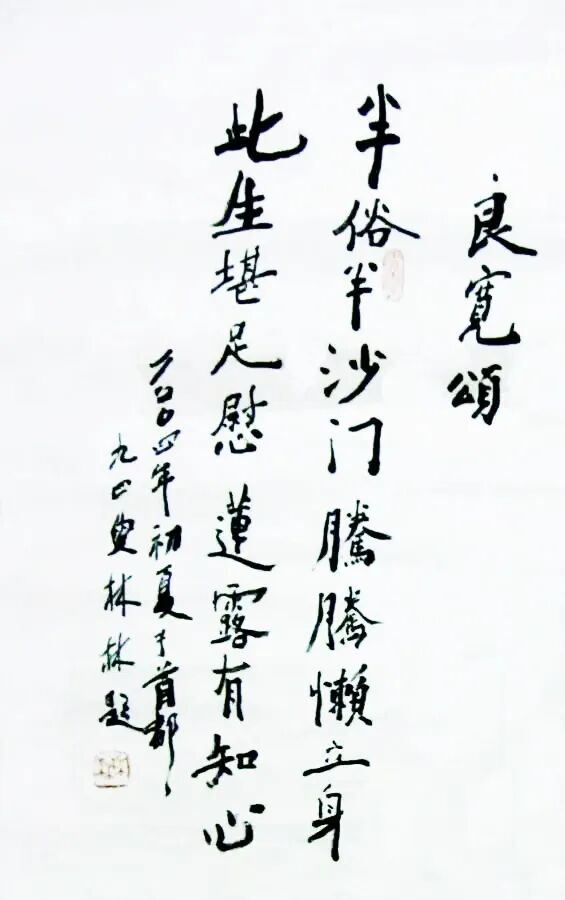 良寬頌
半俗半沙门騰騰懶立身
此生堪足慰蓮露有知心
二〇〇四年初夏于首都
九四叟林林题